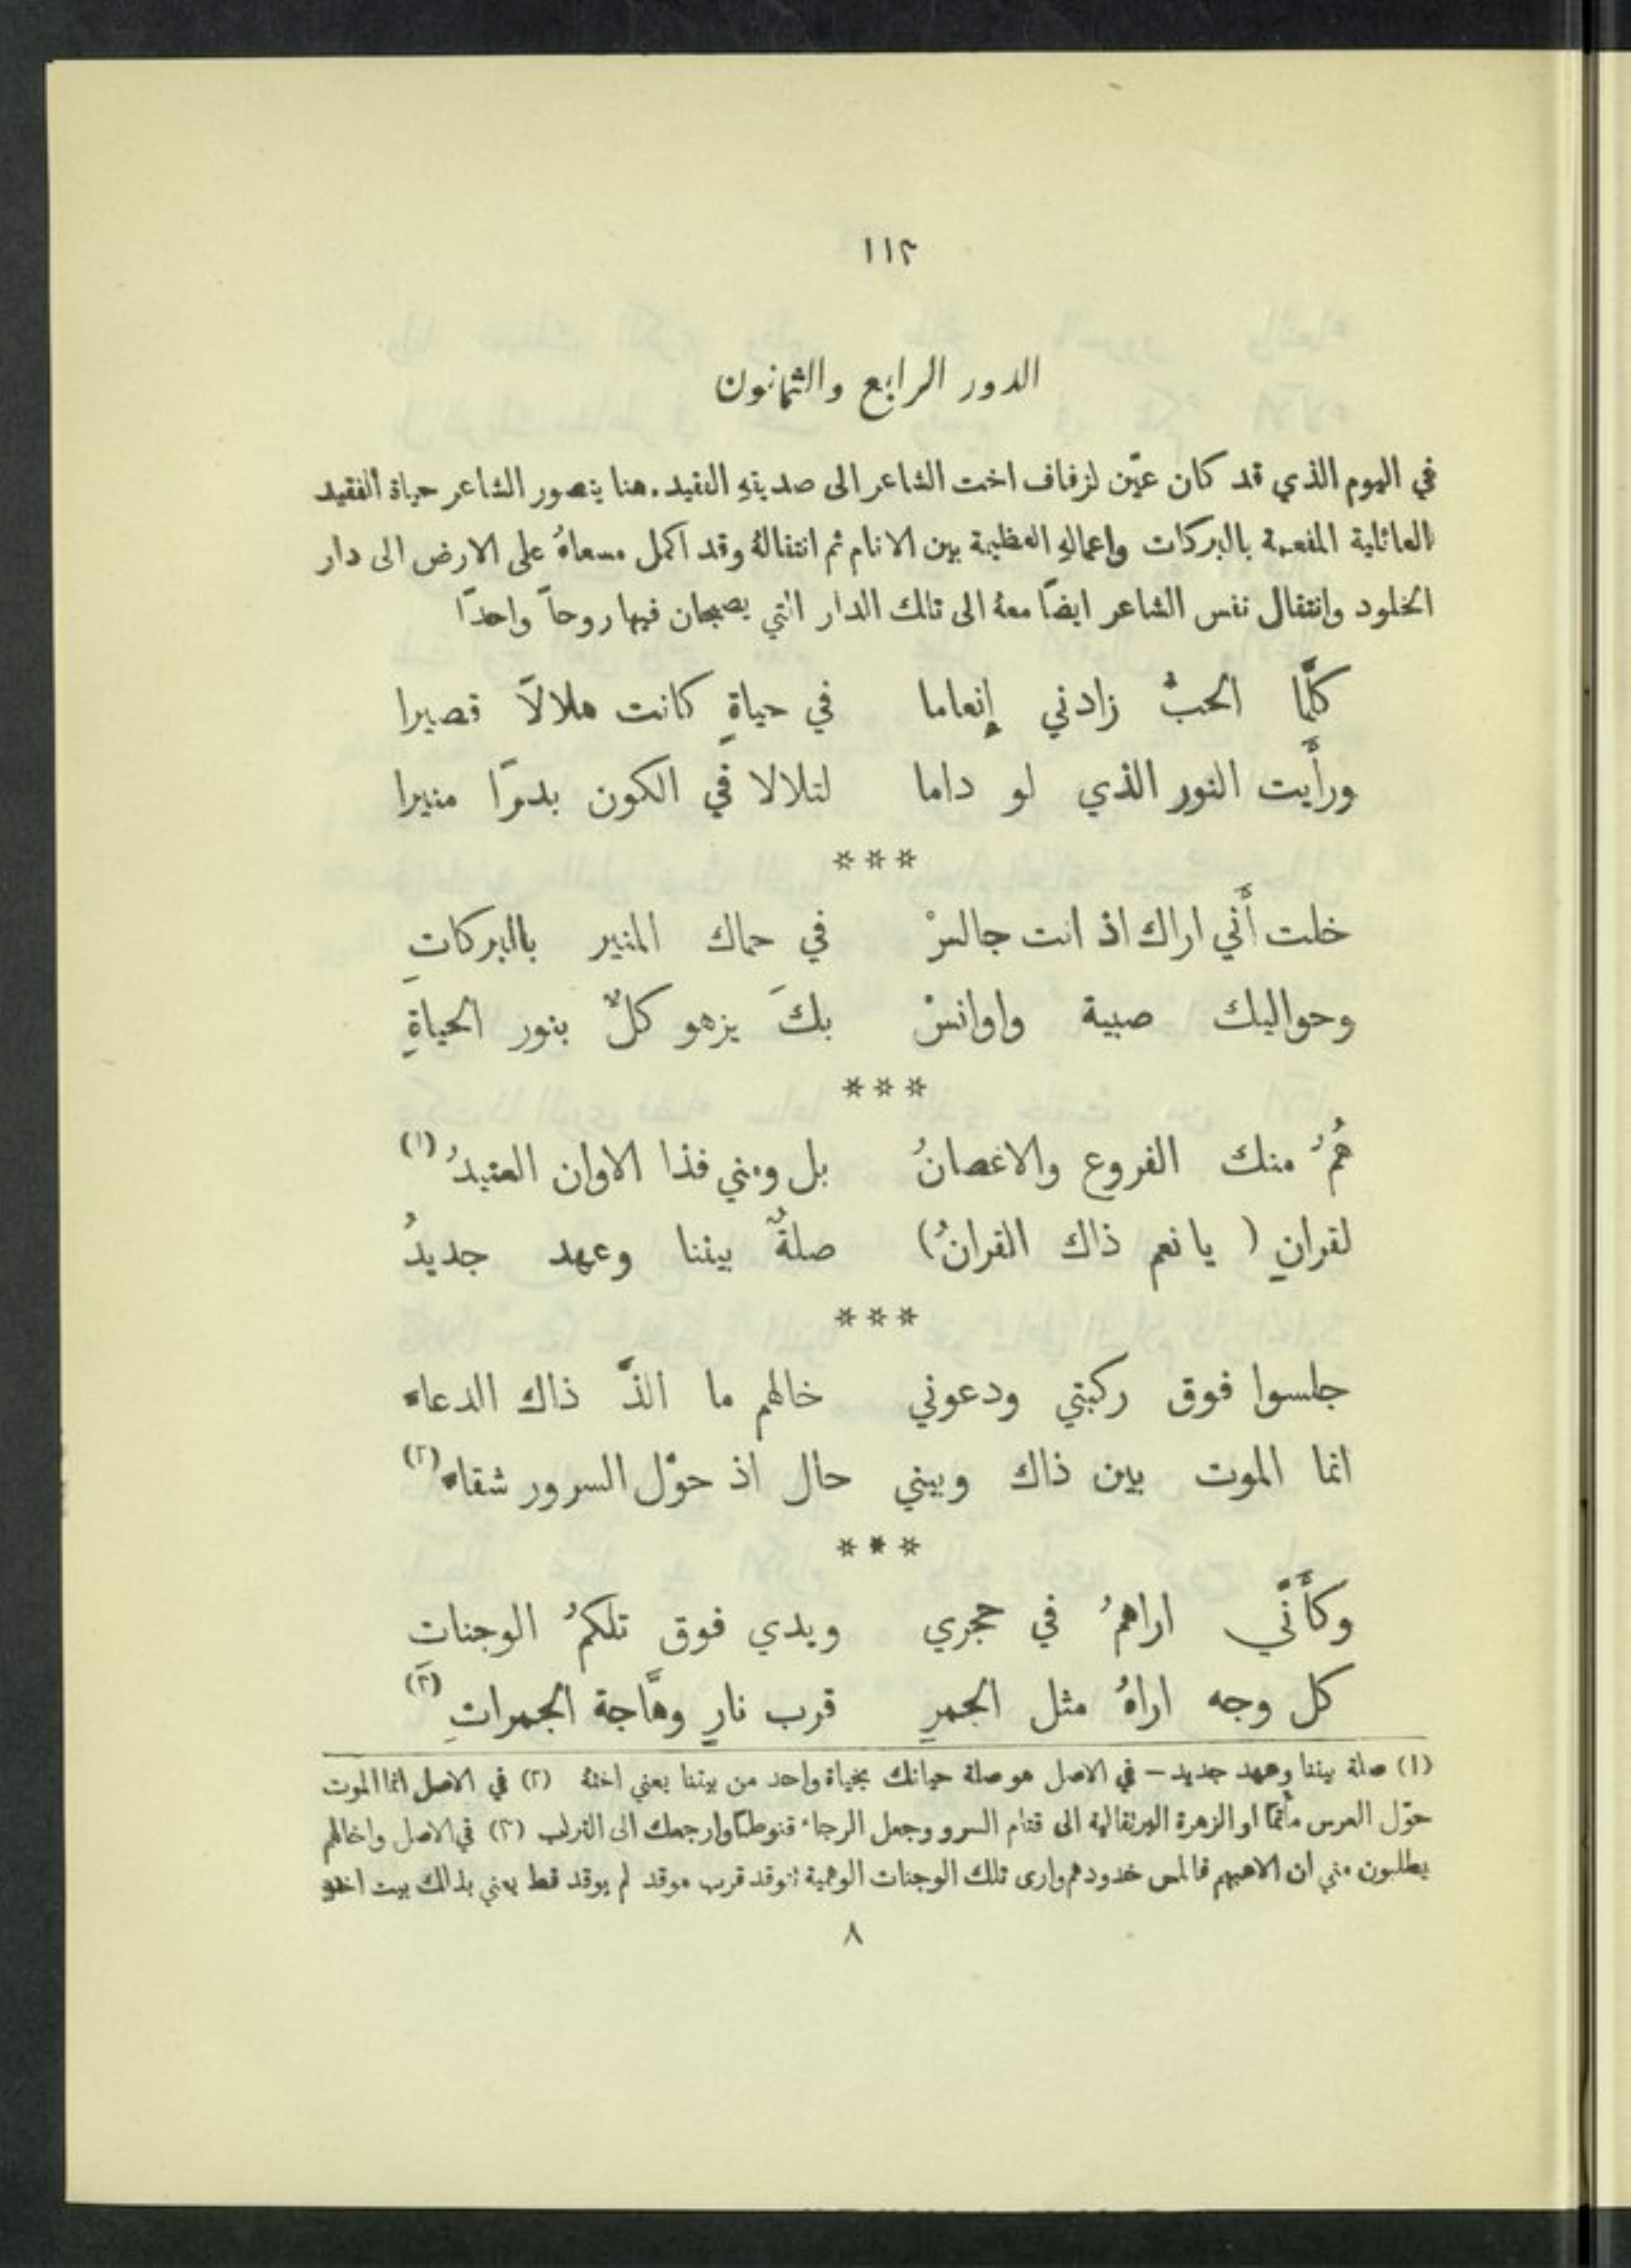 ١١٣
الدور الرابع والثمانون
في اليوم الذي قد كان عيّن لزفاف اخت الشاعر الى صديقهِ الفقيد. هنا يتصور الشاعر حياة الفقيد
العائلية المفعمة بالبركات واعمالهِ العظيمة بين الانام ثم انتقالهُ وقد اكمل مسعاهُ على الارض الى دار
الخلود وانتقال نفس الشاعر ايضًا معهُ الى تلك الدار التي يصبحان فيها روحاً واحدًا
كلَّما الحبُّ زادني إِنعاما في حياةٍ كانت هلالاً قصيرا
ورأَيت النور الذي لو داما لتلالا في الكون بدرًا منيرا
***
خلت أَني اراك اذ انت جالسْ في حماك المنير بالبركاتِ
وحواليك صبية واوانسْ بكَ يزهو كلٌّ بنور الحياةِ
***
هُمُ منك الفروع والاغصانُ بل ومني فذا الاوان العتيدُ (١)
لقرانٍ ( يا نعم ذاك القرانُ) صلةٌ بيننا وعهد جديدُ
***
جلسوا فوق ركبتي ودعوني خالهم ما الذَّ ذاك الدعاء
انما الموت بين ذاك وبيني حال اذ حوَّل السرور شقاء (٢)
***
وكأَنَّني اراهمُ في حجري ويدي فوق تلكمُ الوجناتِ
كل وجه اراهُ مثل الجمرِ قرب نارٍ وهَّاجة الجمراتِ (٣)
(١) صلة بيننا وعهد جديد – في الاصل هو صلة حياتك بحياة واحد من بيتنا يعني اختهُ (٢) في الاصل انما الموت
حوّل العرس مأتمًا او الزهرة البرتقالية الى قتام السرو وجعل الرجاء قنوطًا وارجعك الى التراب (٣) في الاصل واخالهم
يطلبون مني ان الاعبهم فالمس خدودهم وارى تلك الوجنات الوهمية تتوقد قرب موقد لم يوقد قط يعني بذلك بيت اختهِ
٨